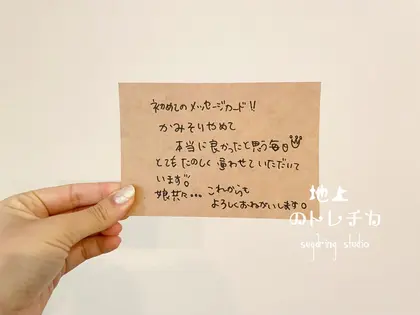 初めてのメッセージカード!!
かみそりやめて
本当に良かったと思う毎日
とてもたのしく通わせていただいて
います
娘共々… これからも
よろしくおねがいします。
地上
のトレチカ
sugaring studio